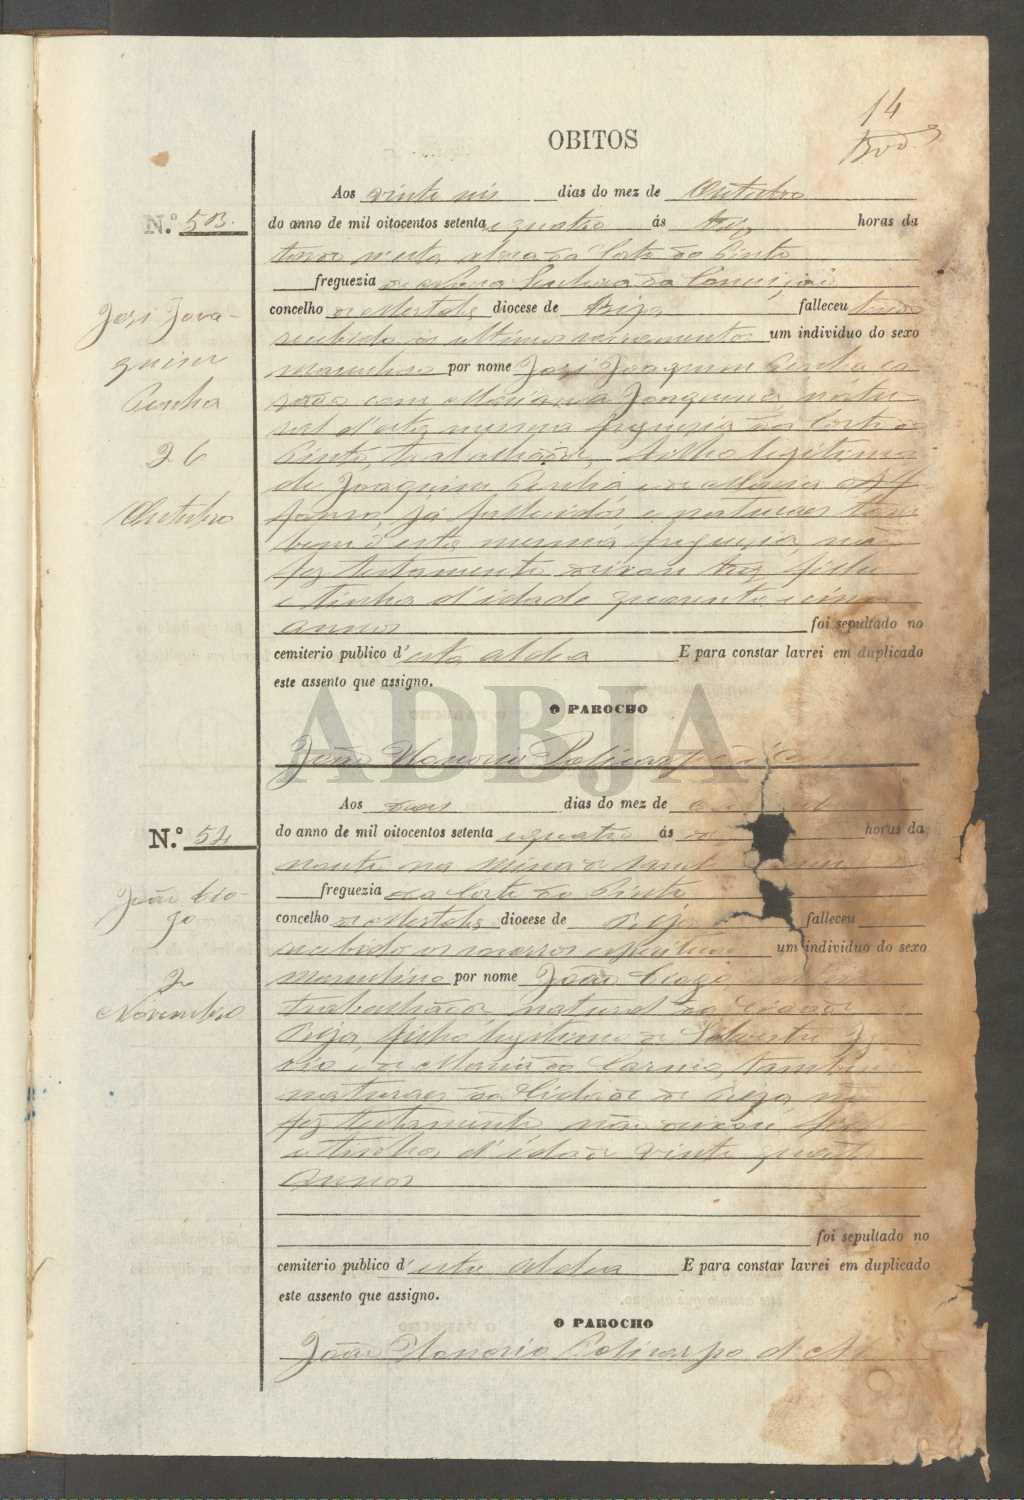 14
OBITOS
N.º 53.
José Joa-
quim
Penha
26
Outubro
Aos vinte seis dias do mez de Outubro
do anno de mil oitocentos setenta e quatro ás tres horas da
tarde nesta aldea da Corte do Pinto
freguezia de Nossa Senhora da Conceição
concelho de Mertola diocese de Beja falleceu tendo
recebido os ultimos sacramentos um individuo do sexo
masculino por nome José Joaquim Penha ca
sado com Marianna Joaquina natu
ral d'esta mesma freguezia da Corte do
Pinto, trabalhador, filho legitimo
de Joaquim Penha e de Maria Af
fonso, já fallecidos e naturaes tam
bem d'esta mesma freguezia, não
fez testamento deixou tres filhos
e tinha d'idade quarenta e cinco
annos foi sepultado no
cemiterio publico d'esta aldea E para constar lavrei em duplicado
este assento que assigno.
O PAROCHO
João Honorio Policarpo
ADBJA
N.º 54
João Ero-
zo
2
Novembro
Aos dois dias do mez de
do anno de mil oitocentos setenta e quatro ás horas da
noute na Mina de
freguezia da Corte do Pinto
concelho de Mertola diocese de Beja falleceu
recebido os socorros espirituaes um individuo do sexo
masculino por nome João
trabalhador, natural da Cidade de
Beja, filho legitimo de Silvestre
e de Maria do Carmo, tambem
naturaes da Cidade de Beja não
fez testamento não deixou
e tinha d'idade vinte quatro
annos
foi sepultado no
cemiterio publico d'esta aldea E para constar lavrei em duplicado
este assento que assigno.
O PAROCHO
João Honorio Policarpo d